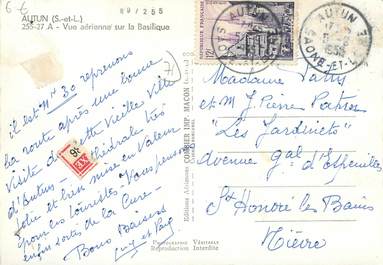 6 €
89/255
AUTUN (S.-et-L.)
255-27 A - Vue aérienne sur la Basilique
71
il est 11h 30 reprenons
la route après une bonne
visite de cette Vieille Ville
d'Autun - Cathédrale très
jolie et bien mise en Valeur
pour les touristes. Vous pensons
enfin sortie de la Cure -
Bons Baisers
Guy et Paul
Editions Aériennes COMBIER IMP. MACON
PHOTOGRAPHIE VÉRITABLE
Reproduction Interdite
REPUBLIQUE FRANÇAISE
12F
AUTUN
SAONE-ET-L
AUTUN
SAONE-ET-L
Madame
et M. J. Pierre
"Les Jardinets"
avenue Gal d'Espeuilles
St Honoré les Bains
Nièvre